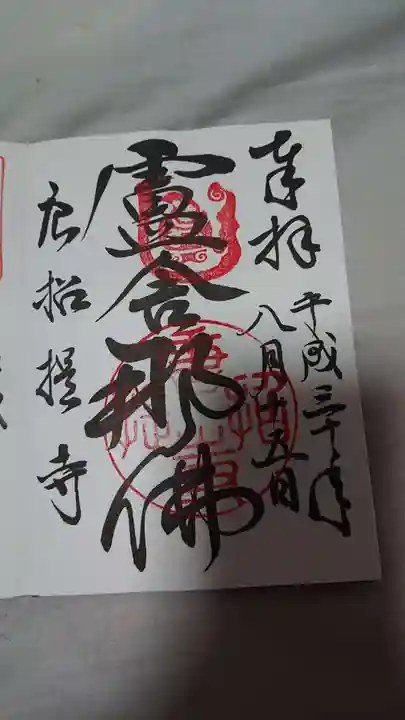 奉拝
平成三十年
八月十五日
盧舎那佛
唐招提寺